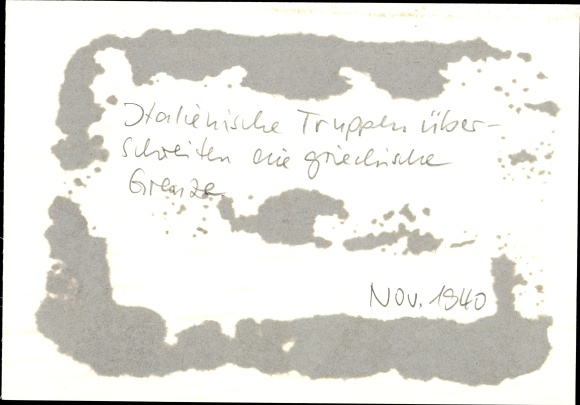 Italienische Truppen über-
schreiten die griechische
Grenze
Nov. 1940